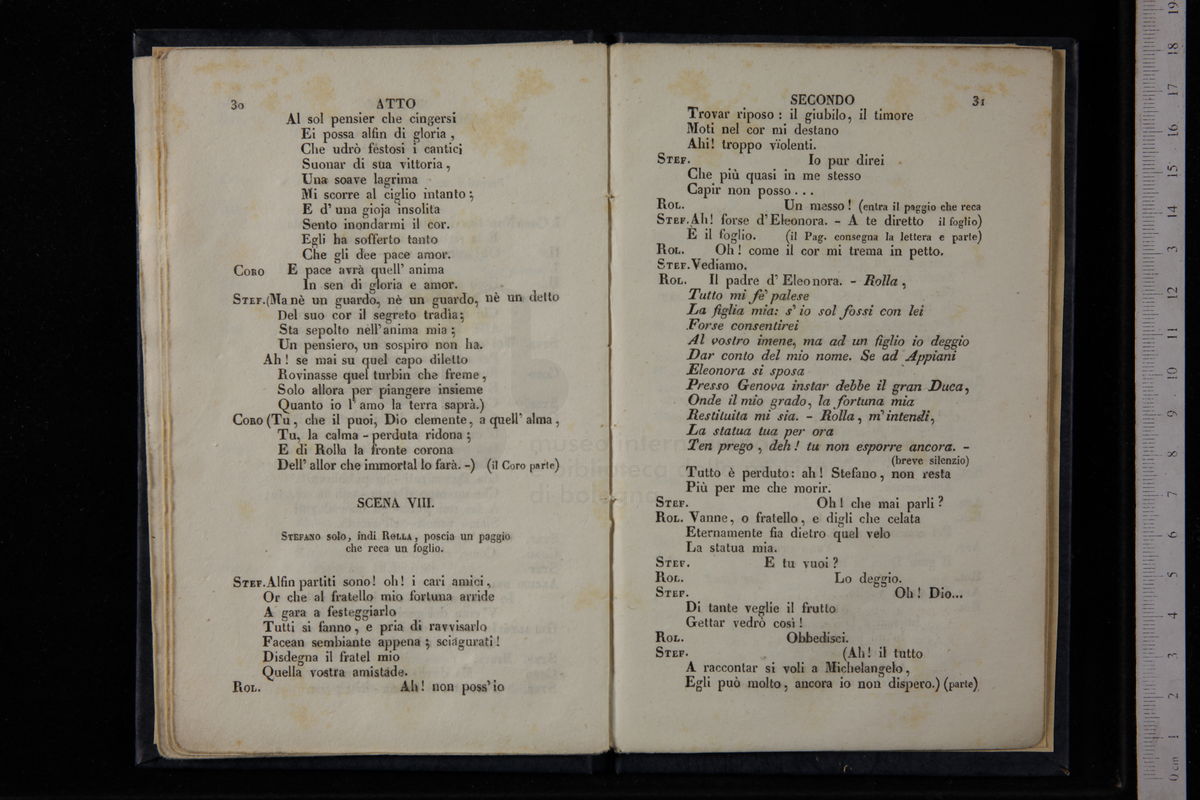 30
ATTO
Al sol pensier che cingersi
Ei possa alfin di gloria,
Che udrò festosi i cantici
Suonar di sua vittoria,
Una soave lagrima
Mi scorre al ciglio intanto;
E d' una gioja insolita
Sento inondarmi il cor.
Egli ha sofferto tanto
Che gli dee pace amor.
CORO E pace avrà quell' anima
In sen di gloria e amor.
STEF.(Ma nè un guardo, nè un guardo, nè un detto
Del suo cor il segreto tradìa;
Sta sepolto nell'anima mia;
Un pensiero, un sospiro non ha.
Ah! se mai su quel capo diletto
Rovinasse quel turbin che freme,
Solo allora per piangere insieme
Quanto io l' amo la terra saprà.)
CORO (Tu, che il puoi, Dio clemente, a quell' alma,
Tu, la calma - perduta ridona;
E di Rolla la fronte corona
Dell' allor che immortal lo farà. -) (il Coro parte)
SCENA VIII.
STEFANO solo, indi ROLLA, poscia un paggio
che reca un foglio.
STEF.Alfin partiti sono! oh! i cari amici,
Or che al fratello mio fortuna arride
A gara a festeggiarlo
Tutti si fanno, e pria di ravvisarlo
Facean sembiante appena; sciagurati!
Disdegna il fratel mio
Quella vostra amistade.
ROL. Ah! non poss' io
SECONDO
31
Trovar riposo: il giubilo, il timore
Moti nel cor mi destano
Ahi! troppo vïolenti.
STEF. Io pur direi
Che più quasi in me stesso
Capir non posso...
ROL. Un messo! (entra il paggio che reca
STEF.Ah! forse d'Eleonora. - A te diretto il foglio)
È il foglio. (il Pag. consegna la lettera e parte)
ROL. Oh! come il cor mi trema in petto.
STEF.Vediamo.
ROL. Il padre d' Eleonora. - Rolla,
Tutto mi fe' palese
La figlia mia: s' io sol fossi con lei
Forse consentirei
Al vostro imene, ma ad un figlio io deggio
Dar conto del mio nome. Se ad Appiani
Eleonora si sposa
Presso Genova instar debbe il gran Duca,
Onde il mio grado, la fortuna mia
Restituita mi sia. - Rolla, m'intendi,
La statua tua per ora
Ten prego, deh! tu non esporre ancora. -
(breve silenzio)
Tutto è perduto: ah! Stefano, non resta
Più per me che morir.
STEF. Oh! che mai parli?
ROL. Vanne, o fratello, e digli che celata
Eternamente fia dietro quel velo
La statua mia.
STEF. E tu vuoi?
ROL. Lo deggio.
STEF. Oh! Dio...
Di tante veglie il frutto
Gettar vedrò così!
ROL. Obbedisci.
STEF. (Ah! il tutto
A raccontar si voli a Michelangelo,
Egli può molto, ancora io non dispero.) (parte)